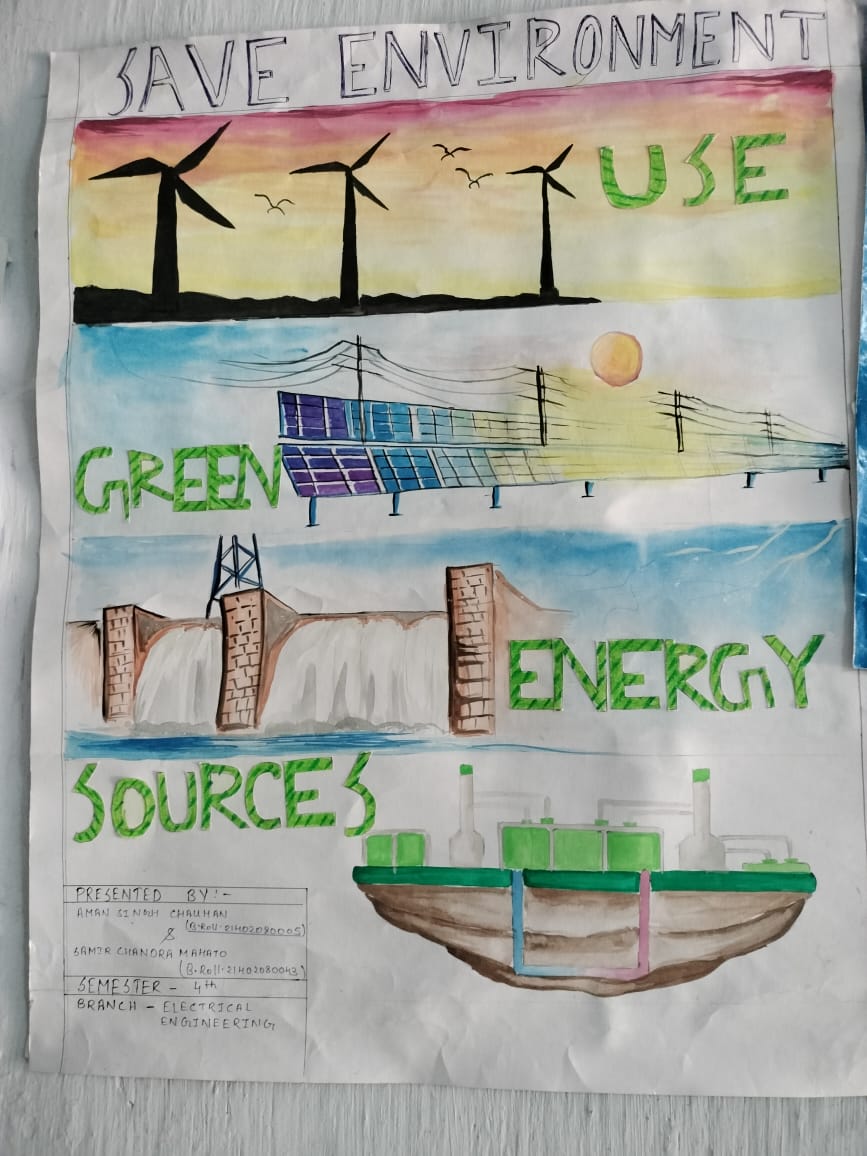 SAVE ENVIRONMENT
USE
GREEN
ENERGY
SOURCES
PRESENTED BY:-
AMAN SINGH CHAUHAN
(B.Roll:21402080005)
&
SAMIR CHANDRA MAHATO
(B.Roll:21402080043)
SEMESTER - 4th
BRANCH - ELECTRICAL
ENGINEERING